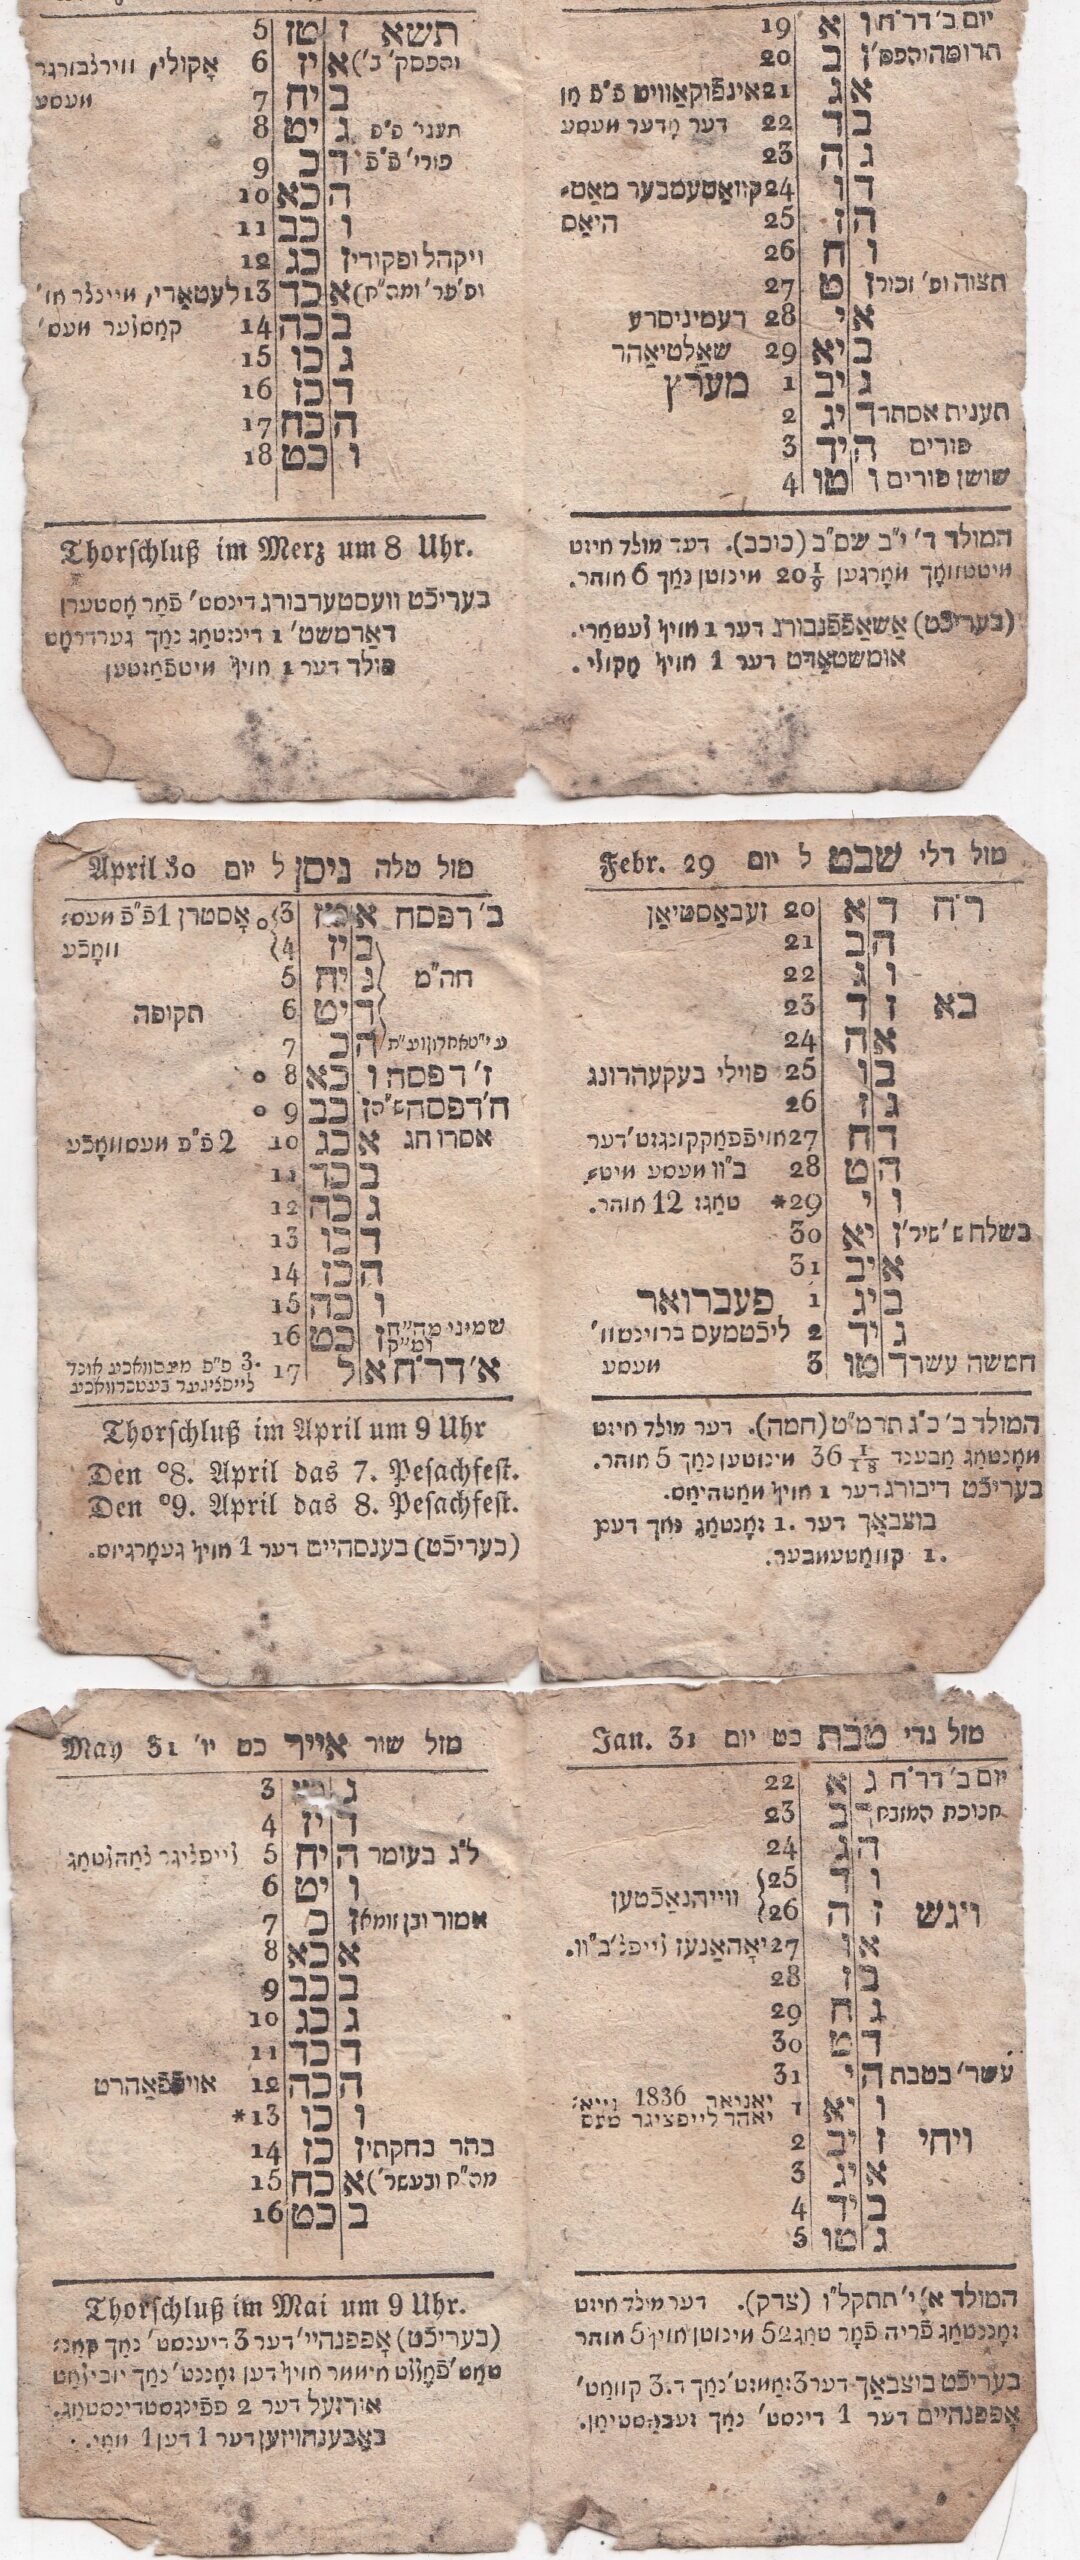 יום ב׳ דר״ח ן א 19
ן ב 20
א ג 21
ב ד 22 דער
ג ה 23
ד ו 24 קוואַטעמבער מאַט⸗
ה ז 25 היאַס
ו ח 26
תצוה ופ׳ זכור ז ט 27
א י 28 רעמיניסרע
ב יא 29 שאַלטיאַהר
ג יב 1 מערץ
תענית אסתר ד יג 2
פורים ה יד 3
שושן פורים ו טו 4
המולד ד׳ י״ב שם״ב (כוכב). דער מולד היינט
מיטטוואָך מאָרגען 20 1/9 מינוטן נאָך 6 אוהר.
(בעריכֿט) אַשאַפֿפֿנבורג דער 1 אויף לעטאַרי.
אומשטאָדט דער 1 אויף אָקולי.
תשא ז טז 5
והפסק׳ ב׳) א יז 6 אָקולי, ווירצבורגר
ב יח 7 מעסע
תעני׳ פ״פ ג יט 8
פורי׳ פֿ״פֿ ד כ 9
ה כא 10
ו כב 11
ויקהל ופקודי ז כג 12
ופ׳ פר׳ ומה״ח) א כד 13 לעטאַרי, מיינצר
ב כה 14 קאַסלער מעס׳
ג כו 15
ד כז 16
ה כח 17
ו כט 18
Thorschluß im Merz um 8 Uhr.
בעריכֿט וועסטערבורג דינסט׳ פֿאָר אָסטערן
דאַרמשט׳ 1 דינזטאַג נאָך
פולד דער 1 אויף מיטפֿאַסטען
מזל דלי שבט ל יום Febr. 29
ר״ח ד א 20 זעבאַסטיאַן
ה ב 21
ו ג 22
בא ז ד 23
א ה 24
ב ו 25 פוילי בעקעהרונג
ג ז 26
ד ח 27
ה ט 28 ב״וו מעסע מיט⸗
ו י 29* טאַגז 12 אוהר.
בשלח ש׳ שיר׳ ז יא 30
א יב 31
ב יג 1 פעברואר
ג יד 2 ליכֿטמעס ברוינשוו׳
חמשה עשר ד טו 3 מעסע
המולד ב׳ כ״ג תרמ״ט (חמה). דער מולד היינט
מאָנטאַג אַבענד 36 1/18 מינוטען נאָך 5 אוהר.
בעריכֿט דיבורג דער 1 אויף מאַטהיאַס.
בוצבאַך דער .1 מאָנטאַג נאָך דעם
1. קוואַטעמבער.
מזל טלה ניסן ל יום April 30
ב׳ דפסח א טז 3 ° אָסטרן 1 פֿ״פֿ מעס⸗
ב יז 4 וואָכֿע
חה״מ ג יח 5
ד יט 6 תקופה
ה כ 7
ז׳ דפסח ו כא 8 °
ח׳ דפסח ז כב 9 °
אסרו חג א כג 10 2 פֿ״פֿ מעסוואָכֿע
ב כד 11
ג כה 12
ד כו 13
ה כז 14
ו כח 15
שמיני מה״ח ז כט 16
א׳ דר״ח א ל 17 3. פ״פ מעסוואכע אונד
לייפציגער
Thorschluß im April um 9 Uhr
Den °8. April das 7. Pesachfest.
Den °9. April das 8. Pesachfest.
(בעריכֿט) בענסהיים דער 1 אויף געאָרגיוס.
מזל גדי טבת כט יום Jan. 31
יום ב׳ דר״ח ג א 22
חנוכת המזבח ד ב 23
ה ג 24
ו ד 25
ויגש ז ה 26 ווייהנאַכֿטען
א ו 27 יאָהאַנעז לייפצ׳ ב״וו.
ב ז 28
ג ח 29
ד ט 30
עשר׳ בטבת ה י 31
ו יא 1 יאניאר 1836 נייא⸗
יאהר לייפציגר מעס
ויחי ז יב 2
א יג 3
ב יד 4
ג טו 5
המולד א׳ י׳ תתקל״ו (צדק). דער מולד היינט
זאָננטאַג פֿריה פֿאָר טאַג 52 מינוטן אויף 5 אוהר
בעריכֿט בוצבאַך דער 3 זאַמזט׳ נאָך ד. 3 קוואַט׳
אָפפנהיים דער 1 דינסט׳ נאָך זעבאַסטיאַן.
מזל שור אייר כט יו׳ May 31
ג טז 3
ד יז 4
ל״ג בעומר ה יח 5 לייפציגר צאַהלטאַג
ו יט 6
אמור ובן זומא ז כ 7
א כא 8
ב כב 9
ג כג 10
ד כד 11
ה כה 12 אויפֿפֿאַהרט
ו כו 13*
בהר בחקתי ז כז 14
מה״ח ובעשר׳) א כח 15
ב כט 16
Thorschluß im Mai um 9 Uhr.
(בעריכֿט) אָפפנהיי׳ דער 3 דיענסט׳ נאָך קאַנ⸗
טאַט׳ פֿאֶללט אימער אויף דען זאָננט׳ נאָך יובילאַט
אורזעל דער 2 פפֿינגסטדינסטאַג.
באָבענהויזען דער 1 דען 1 מאַי.